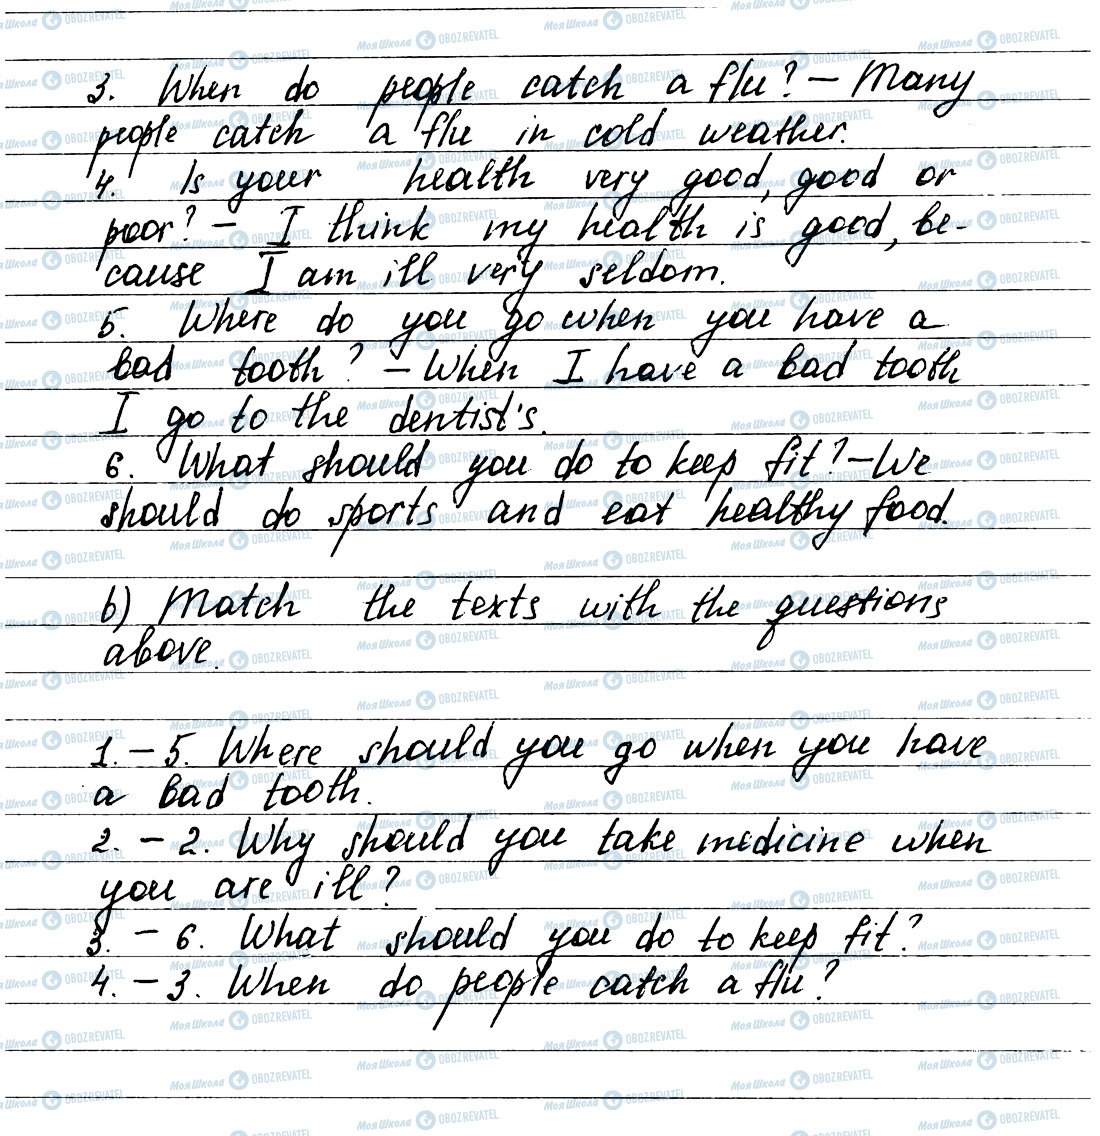 3. When do people catch a flu? – Many
people catch a flu in cold weather.
4. Is your health very good, good or
poor? – I think my health is good, be-
cause I am ill very seldom.
5. Where do you go when you have a
bad tooth? – When I have a bad tooth
I go to the dentist's.
6. What should you do to keep fit? – We
should do sports and eat healthy food.
b) Match the texts with the questions
above.
1. – 5. Where should you go when you have
a bad tooth.
2. – 2. Why should you take medicine when
you are ill?
3. – 6. What should you do to keep fit?
4. – 3. When do people catch a flu?
Моя Школа OBOZREVATEL